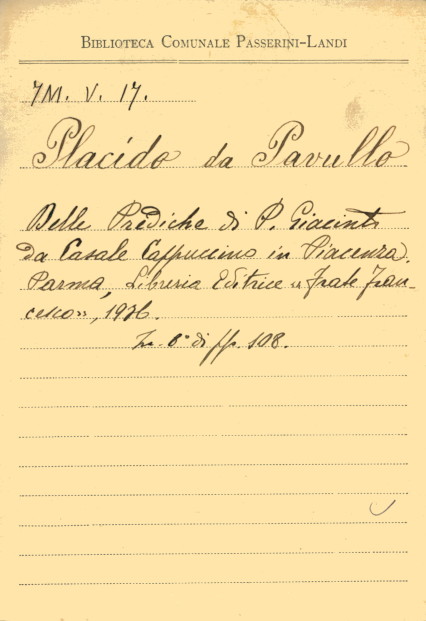 BIBLIOTECA COMUNALE PASSERINI-LANDI
7M. V. 17.
Placido da Pavullo
Delle Prediche di P. Giacinto
da Casale Cappuccino in Piacenza.
Parma, Libreria Editrice «Frate Fran-
cesco», 1936.
In 8° di pp. 108.